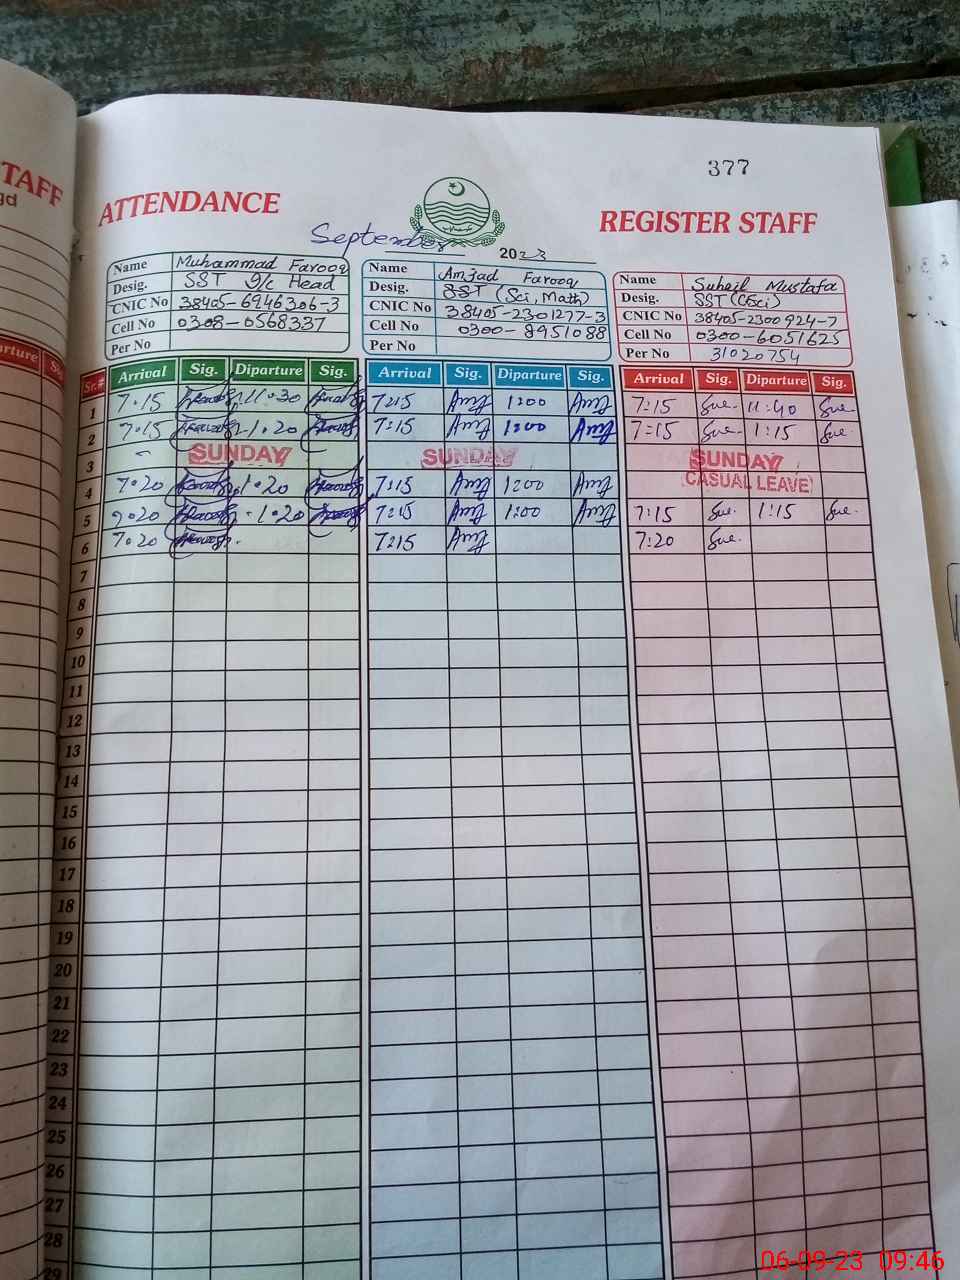 TAFF
gd
377
ATTENDANCE REGISTER STAFF
September 2023
Name Muhammad Farooq
Desig. SST I/c Head
CNIC No 38405-6946306-3
Cell No 0308-0568337
Per No
Name Amjad Farooq
Desig. SST (Sci, Math)
CNIC No 38405-2301277-3
Cell No 0300-8951088
Per No
Name Suheil Mustafa
Desig. SST (CSci)
CNIC No 38405-2300924-7
Cell No 0300-6051625
Per No 31020754
parture
Sr.# Arrival Sig. Diparture Sig. Arrival Sig. Diparture Sig. Arrival Sig. Diparture Sig.
1 7.15 11.30 7:15 Amj 1:00 Amj 7:15 Sue. 11:40 Sue.
2 7.15 1.20 7:15 Amj 1:00 Amj 7:15 Sue. 1:15 Sue.
3 SUNDAY SUNDAY SUNDAY
4 7.20 1.20 7:15 Amj 1:00 Amj CASUAL LEAVE
5 7.20 1.20 7:15 Amj 1:00 Amj 7:15 Sue. 1:15 Sue.
6 7.20 7:15 Amj 7:20 Sue.
7
8
9
10
11
12
13
14
15
16
17
18
19
20
21
22
23
24
25
26
27
28
29
06-09-23 09:46